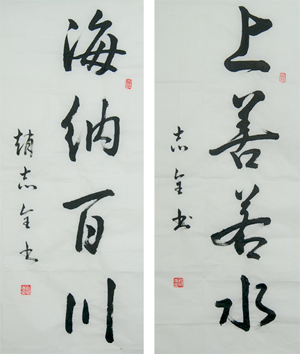 上善若水
志金书
海纳百川
趙志金书